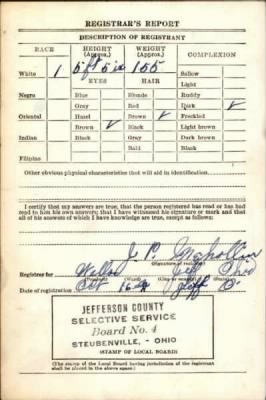 REGISTRAR'S REPORT
DESCRIPTION OF REGISTRANT
RACE HEIGHT (Approx.) WEIGHT (Approx.) COMPLEXION
White 1 5 ft 5 in 155 Sallow
EYES HAIR Light
Negro Blue Blonde Ruddy
Gray Red Dark ✓
Oriental Hazel Brown ✓ Freckled
Brown ✓ Black Light brown
Indian Black Gray Dark brown
Bald Black
Filipino
Other obvious physical characteristics that will aid in identification
I certify that my answers are true; that the person registered has read or has
had read to him his own answers; that I have witnessed his signature or mark and that
all of his answers of which I have knowledge are true, except as follows:
J. P.
(Signature of registrar)
Registrar for Ohio
Date of registration Oct 16
JEFFERSON COUNTY
SELECTIVE SERVICE
Board No. 4
STEUBENVILLE, - OHIO
(STAMP OF LOCAL BOARD)
(The stamp of the Local Board having jurisdiction of the registrant
shall be placed in the above space.)